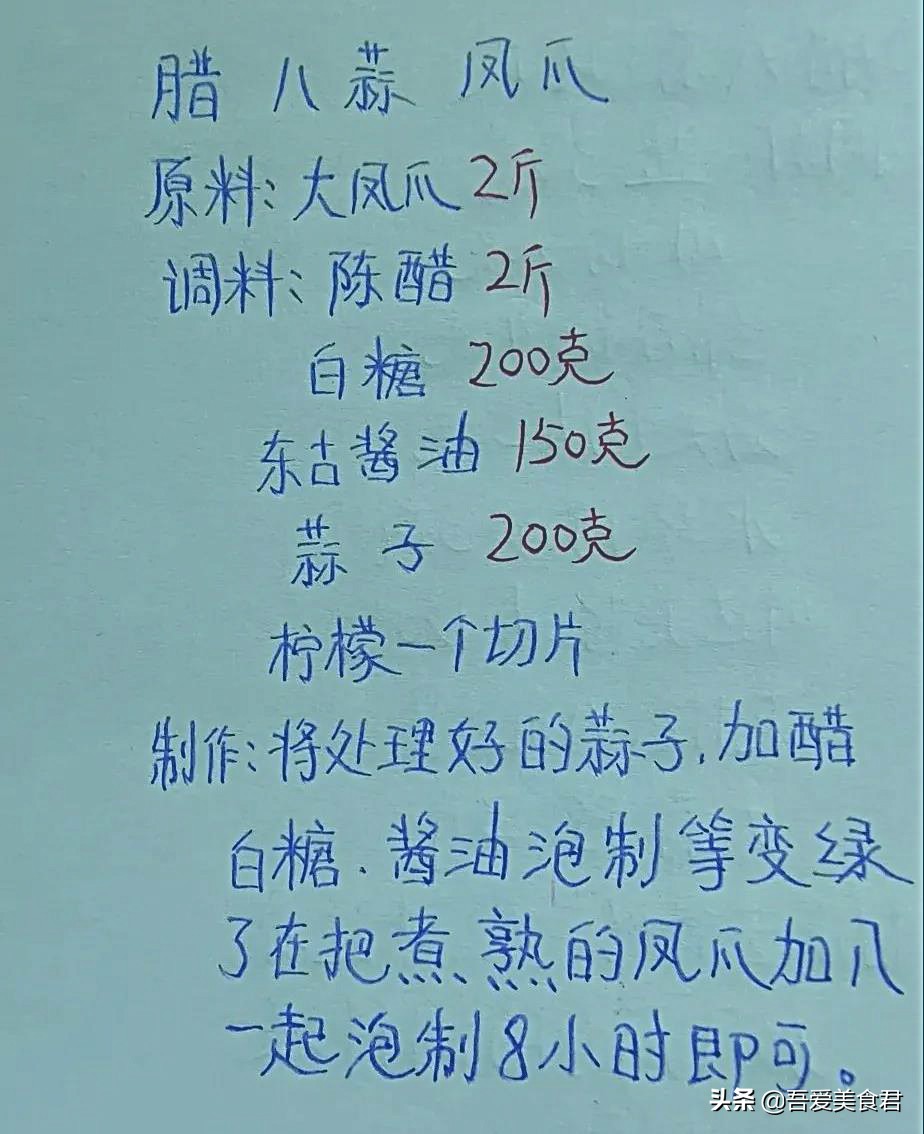 腊八蒜 凤爪
原料:大凤爪2斤
调料:陈醋2斤
白糖 200克
东古酱油 150克
蒜子 200克
柠檬一个切片
制作:将处理好的蒜子,加醋
白糖.酱油泡制等变绿
了在把煮熟的凤爪加入
一起泡制8小时即可。
头条 @吾爱美食君